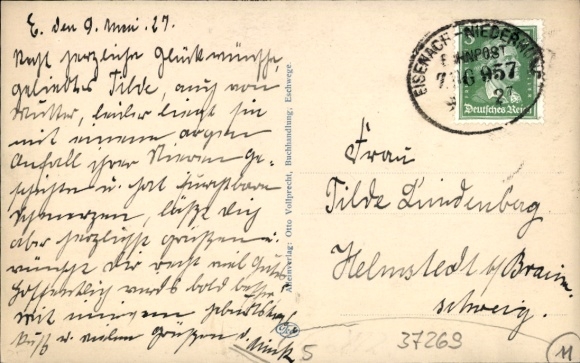 E. den 9. Mai. 27.
Recht herzliche Glückwünsche,
geliebte Tilde, auch von
Mutter, leider liegt sie
mit einem argen
Anfall ihrer Nieren ge-
schichte u. hat furchtbare
Schmerzen, läßt Dich
aber herzlichst grüßen u.
wünscht Dir recht viel Gutes
Hoffentlich wirds bald besser.
Mit innigem Geburtstags
Kuß u. vielen Grüßen d.
EISENACH-NIEDERHONE
BAHNPOST
957
27
Deutsches Reich
Frau
Tilde Lindenberg.
Helmstedt b/Braun-
schweig.
Alleinverlag: Otto Vollprecht, Buchhandlung, Eschwege.
5
37269
11